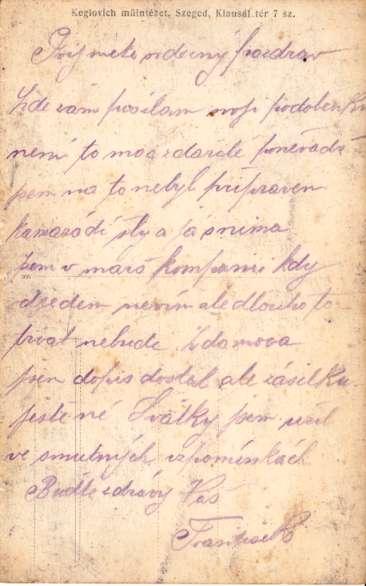 Keglovich műintézet, Szeged, Klauzál tér 7 sz.
Přijměte srdečný pozdrav
Zde vám posílam moji podobenku
není to moc zdarelé poněvadž
jsem na to nebyl připraven
kamarádi šly a já snima
jsem v marš kompanii kdy
nevím ale dlouho to
trvat nebude. Zdomova
jsem dopis dostal ale zásilku
ješte né Svátky jsem užil
ve smutných vzpomínkách
Buďte zdrávy Váš